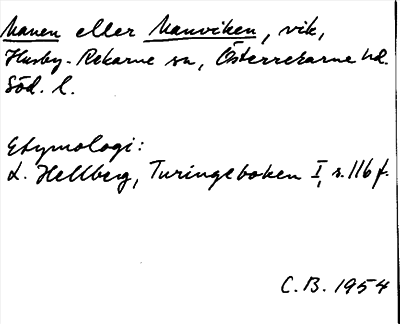 Manen eller Manviken, vik,
Husby-Rekarne sn, Österrekarne hd.
Söd. l.
Etymologi:
L. Hellberg, Turingeboken I, s. 116 f.
C.B. 1954